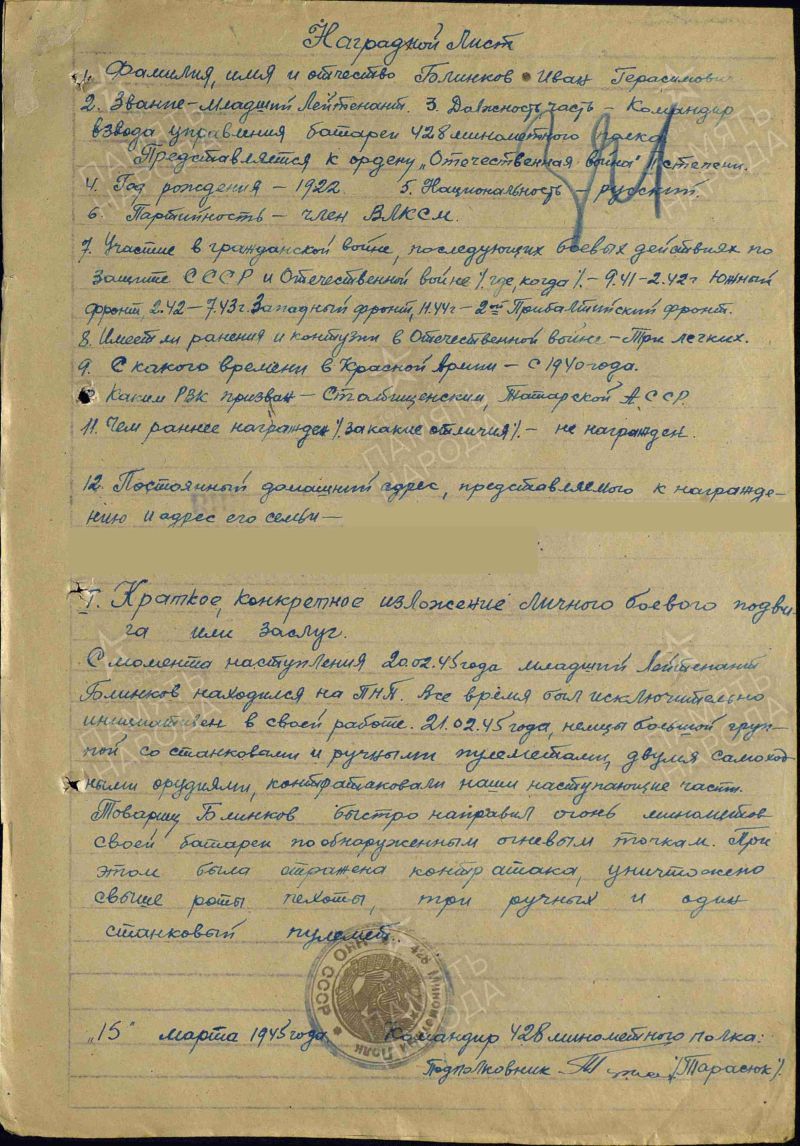 Наградной Лист
1. Фамилия, имя и отчество Блинков Иван Герасимович
2. Звание – Младший Лейтенант. 3. Должность, часть – Командир
взвода управления батареи 428 минометного полка
Представляется к ордену „Отечественная война" степени.
4. Год рождения – 1922. 5. Национальность – русский.
6. Партийность – член ВЛКСМ.
7. Участие в гражданской войне, последующих боевых действиях по
защите СССР и Отечественной войне /где, когда/ – 9.41 – 2.42 г Южный
фронт, 2.42 – 7.43 г. Западный фронт, 11.44 г – 2ой Прибалтийский фронт.
8. Имеет ли ранения и контузии в Отечественной войне – Три легких.
9. С какого времени в Красной Армии – с 1940 года.
Каким РВК призван – Столбищенским, Татарской АССР.
11. Чем раннее награжден /за какие отличия/ – не награжден.
12. Постоянный домашний адрес, представляемого к награжде-
нию и адрес его семьи –
I. Краткое, конкретное изложение личного боевого подви-
га или заслуг.
С момента наступления 20.02.45 года младший Лейтенант
Блинков находился на ПНП. Все время был исключительно
инициативен в своей работе. 21.02.45 года, немцы большой груп-
пой со станковами и ручными пулеметами, двумя самоход-
ными орудиями, контратаковали наши наступающие части.
Товарищ Блинков быстро направил огонь минометов
своей батареи по обнаруженным огневым точкам. При
этом была отражена контратака, уничтожено
свыше роты пехоты, три ручных и один
станковый пулемет.
428 Минометный Полк НКО СССР
„15" марта 1945 года Командир 428 минометного полка:
Подполковник – /Тарасюк/.
ПАМЯТЬ НАРОДА